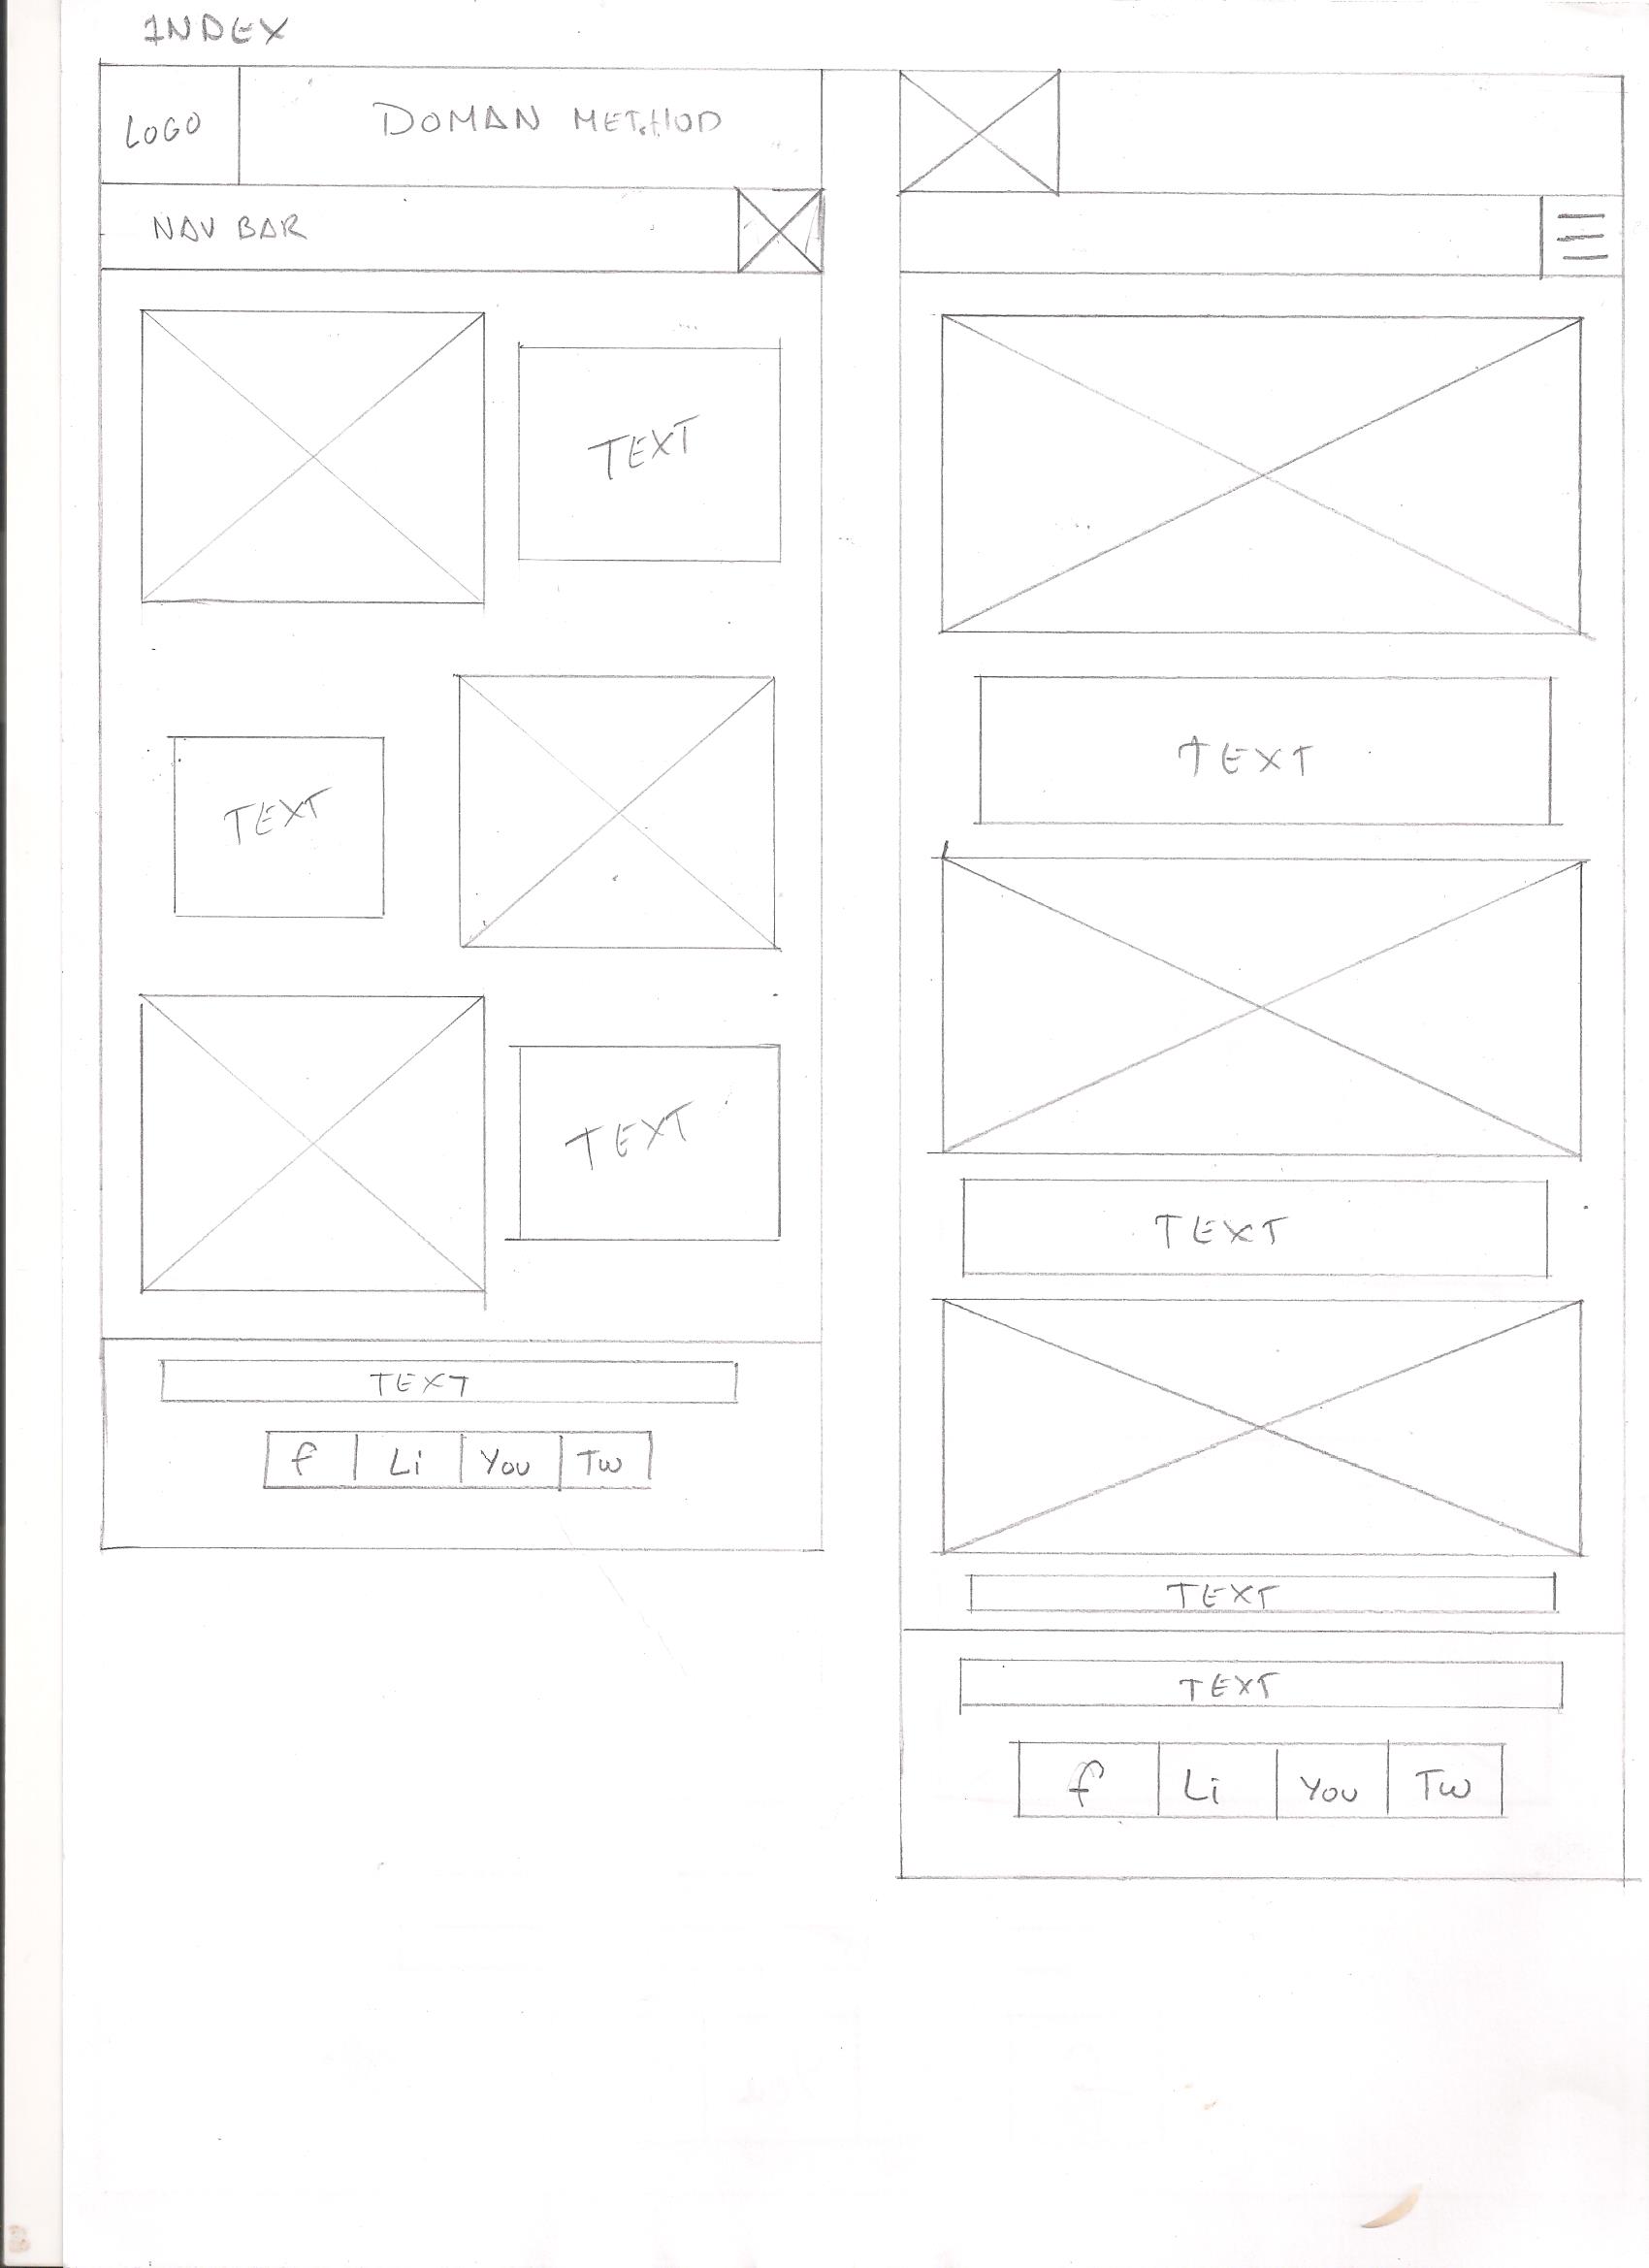 INDEX
LOGO
DOMAN METHOD
NAV BAR
TEXT
TEXT
TEXT
TEXT
f Li You Tw
TEXT
TEXT
TEXT
TEXT
f Li You Tw